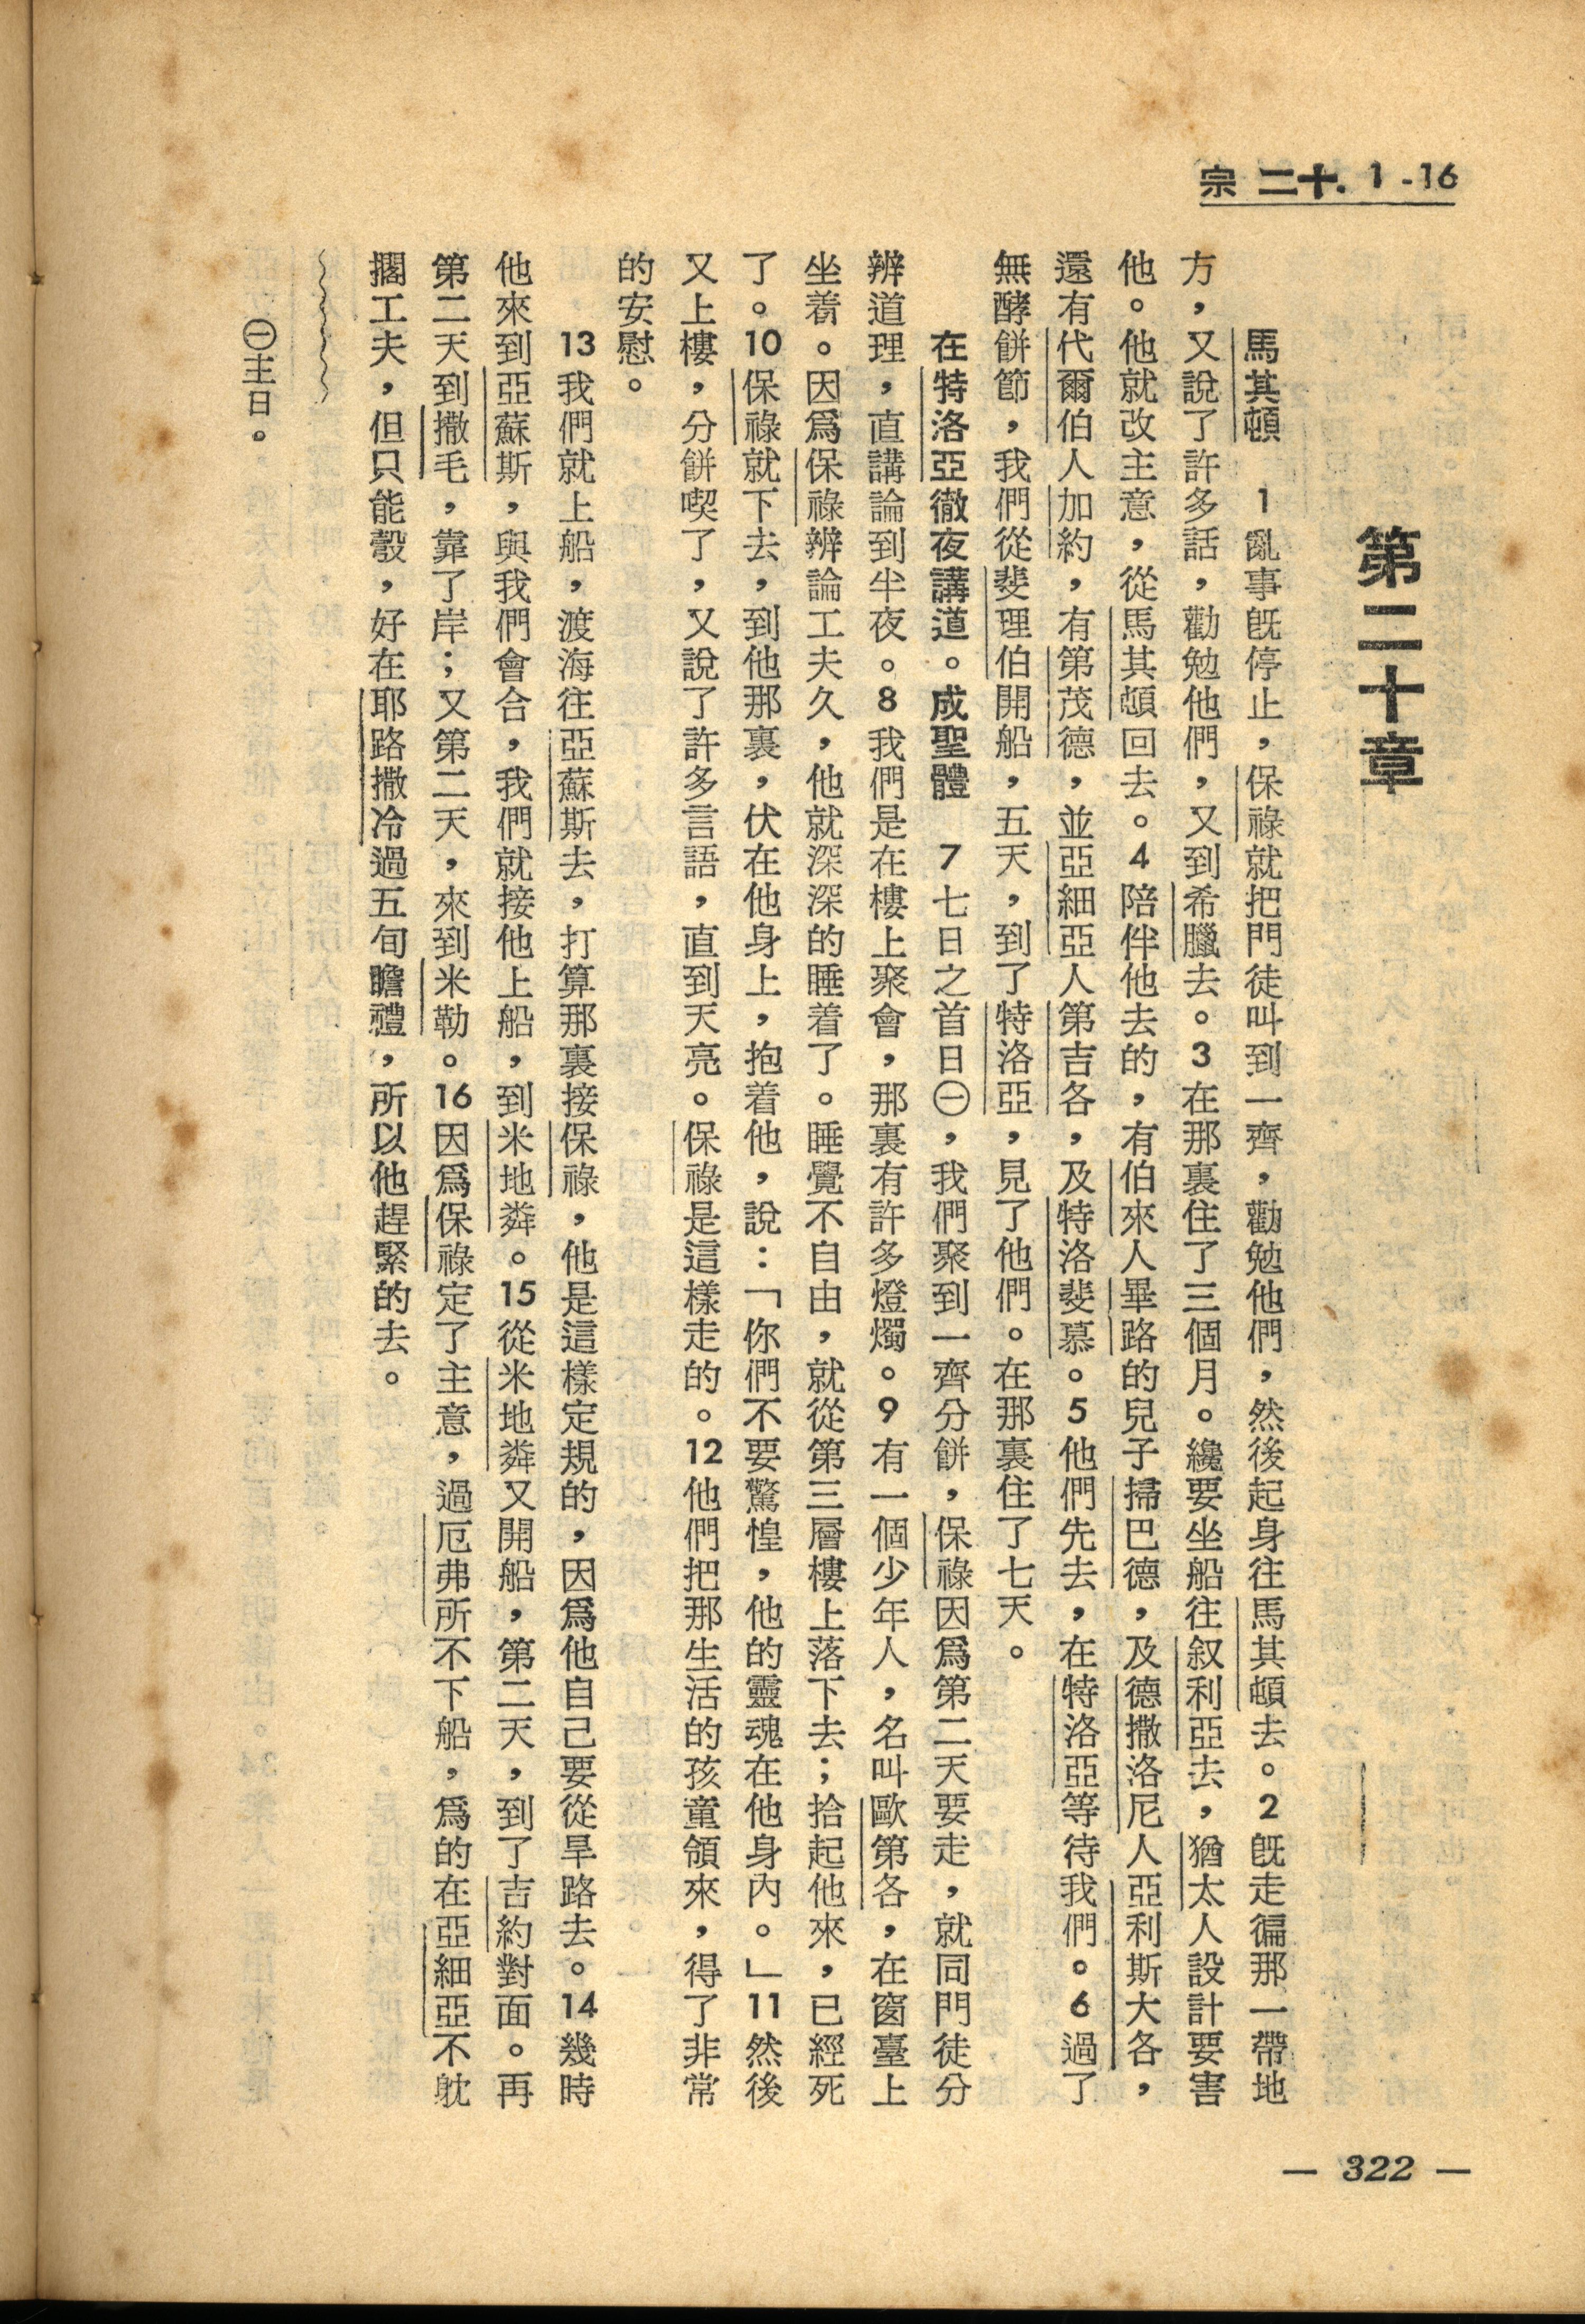 宗 二十. 1 -16
第二十章
馬其頓　1亂事旣停止，保祿就把門徒叫到一齊，勸勉他們，然後起身往馬其頓去。2旣走徧那一帶地
方，又說了許多話，勸勉他們，又到希臘去。3在那裏住了三個月。纔要坐船往叙利亞去，猶太人設計要害
他。他就改主意，從馬其頓回去。4陪伴他去的，有伯來人畢路的兒子掃巴德，及德撒洛尼人亞利斯大各，
還有代爾伯人加約，有第茂德，並亞細亞人第吉各，及特洛斐慕。5他們先去，在特洛亞等待我們。6過了
無酵餅節，我們從斐理伯開船，五天，到了特洛亞，見了他們。在那裏住了七天。
在特洛亞徹夜講道。成聖體　7七日之首日㊀，我們聚到一齊分餅，保祿因爲第二天要走，就同門徒分
辨道理，直講論到半夜。8我們是在樓上聚會，那裏有許多燈燭。9有一個少年人，名叫歐第各，在窗臺上
坐着。因爲保祿辨論工夫久，他就深深的睡着了。睡覺不自由，就從第三層樓上落下去；拾起他來，已經死
了。10保祿就下去，到他那裏，伏在他身上，抱着他，說：「你們不要驚惶，他的靈魂在他身內。」11然後
又上樓，分餅喫了，又說了許多言語，直到天亮。保祿是這樣走的。12他們把那生活的孩童領來，得了非常
的安慰。
13我們就上船，渡海往亞蘇斯去，打算那裏接保祿，他是這樣定規的，因爲他自己要從旱路去。14幾時
他來到亞蘇斯，與我們會合，我們就接他上船，到米地粦。15從米地粦又開船，第二天，到了吉約對面。再
第二天到撒毛，靠了岸；又第二天，來到米勒。16因爲保祿定了主意，過厄弗所不下船，爲的在亞細亞不躭
擱工夫，但只能彀，好在耶路撒冷過五旬瞻禮，所以他趕緊的去。
㊀主日。
— 322 —